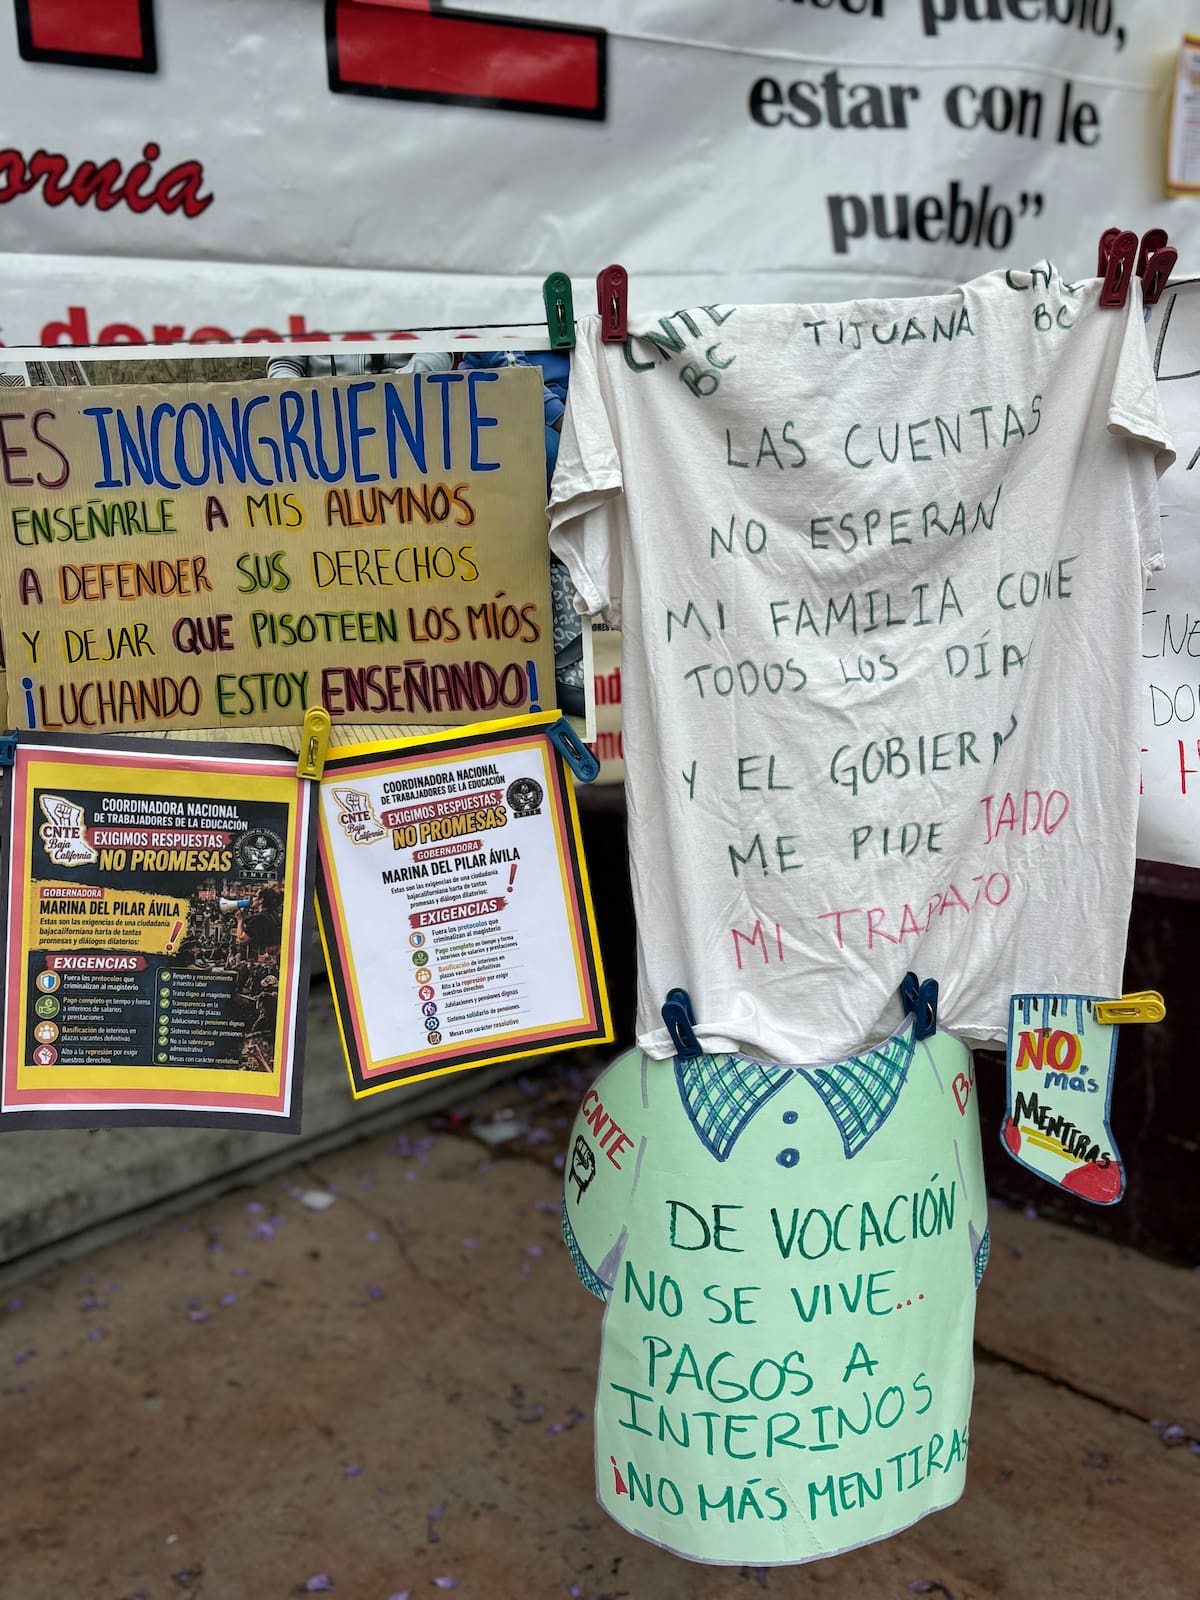 pueblo,
estar con le
pueblo”
ES INCONGRUENTE
ENSEÑARLE A MIS ALUMNOS
A DEFENDER SUS DERECHOS
Y DEJAR QUE PISOTEEN LOS MÍOS
¡LUCHANDO ESTOY ENSEÑANDO!
CNTE
BC
TIJUANA
CNTE
BC
LAS CUENTAS
NO ESPERAN
MI FAMILIA COME
TODOS LOS DÍA
Y EL GOBIERN
ME PIDE
MI TRABAJO
CNTE
Baja
California
COORDINADORA NACIONAL
DE TRABAJADORES DE LA EDUCACIÓN
EXIGIMOS RESPUESTAS,
NO PROMESAS
SNTE
GOBERNADORA
MARINA DEL PILAR ÁVILA
Estas son las exigencias de una ciudadanía
bajacaliforniana harta de tantas
promesas y diálogos dilatorios:
EXIGENCIAS
Fuera los protocolos que
criminalizan al magisterio
Pago completo en tiempo y forma
a interinos de salarios
y prestaciones
Basificación de interinos en
plazas vacantes definitivas
Alto a la represión por exigir
nuestros derechos
Respeto y reconocimiento
a nuestra labor
Trato digno al magisterio
Transparencia en la
asignación de plazas
Jubilaciones y pensiones dignas
Sistema solidario de pensiones
No a la sobrecarga
administrativa
Mesas con carácter resolutivo
CNTE
Baja
California
COORDINADORA NACIONAL
DE TRABAJADORES DE LA EDUCACIÓN
EXIGIMOS RESPUESTAS,
NO PROMESAS
SNTE
GOBERNADORA
MARINA DEL PILAR ÁVILA
Estas son las exigencias de una ciudadanía
bajacaliforniana harta de tantas
promesas y diálogos dilatorios:
EXIGENCIAS
Fuera los protocolos que
criminalizan al magisterio
Pago completo en tiempo y forma
a interinos de salarios y prestaciones
Basificación de interinos en
plazas vacantes definitivas
Alto a la represión por exigir
nuestros derechos
Jubilaciones y pensiones dignas
Sistema solidario de pensiones
Mesas con carácter resolutivo
NO
más
MENTIRAS
CNTE
B.C
DE VOCACIÓN
NO SE VIVE...
PAGOS A
INTERINOS
¡NO MÁS MENTIRAS